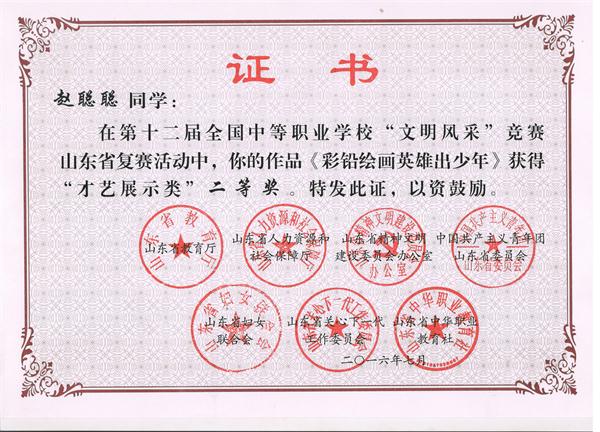 证书
赵聪聪 同学：
在第十二届全国中等职业学校“文明风采”竞赛
山东省复赛活动中，你的作品《彩铅绘画英雄出少年》获得
“才艺展示类”二等奖。特发此证，以资鼓励。
山东省教育厅
山东省人力资源和
社会保障厅
山东省精神文明
建设委员会办公室
中国共产主义青年团
山东省委员会
山东省妇女
联合会
山东省关心下一代
工作委员会
山东省中华职业
教育社
二〇一六年七月